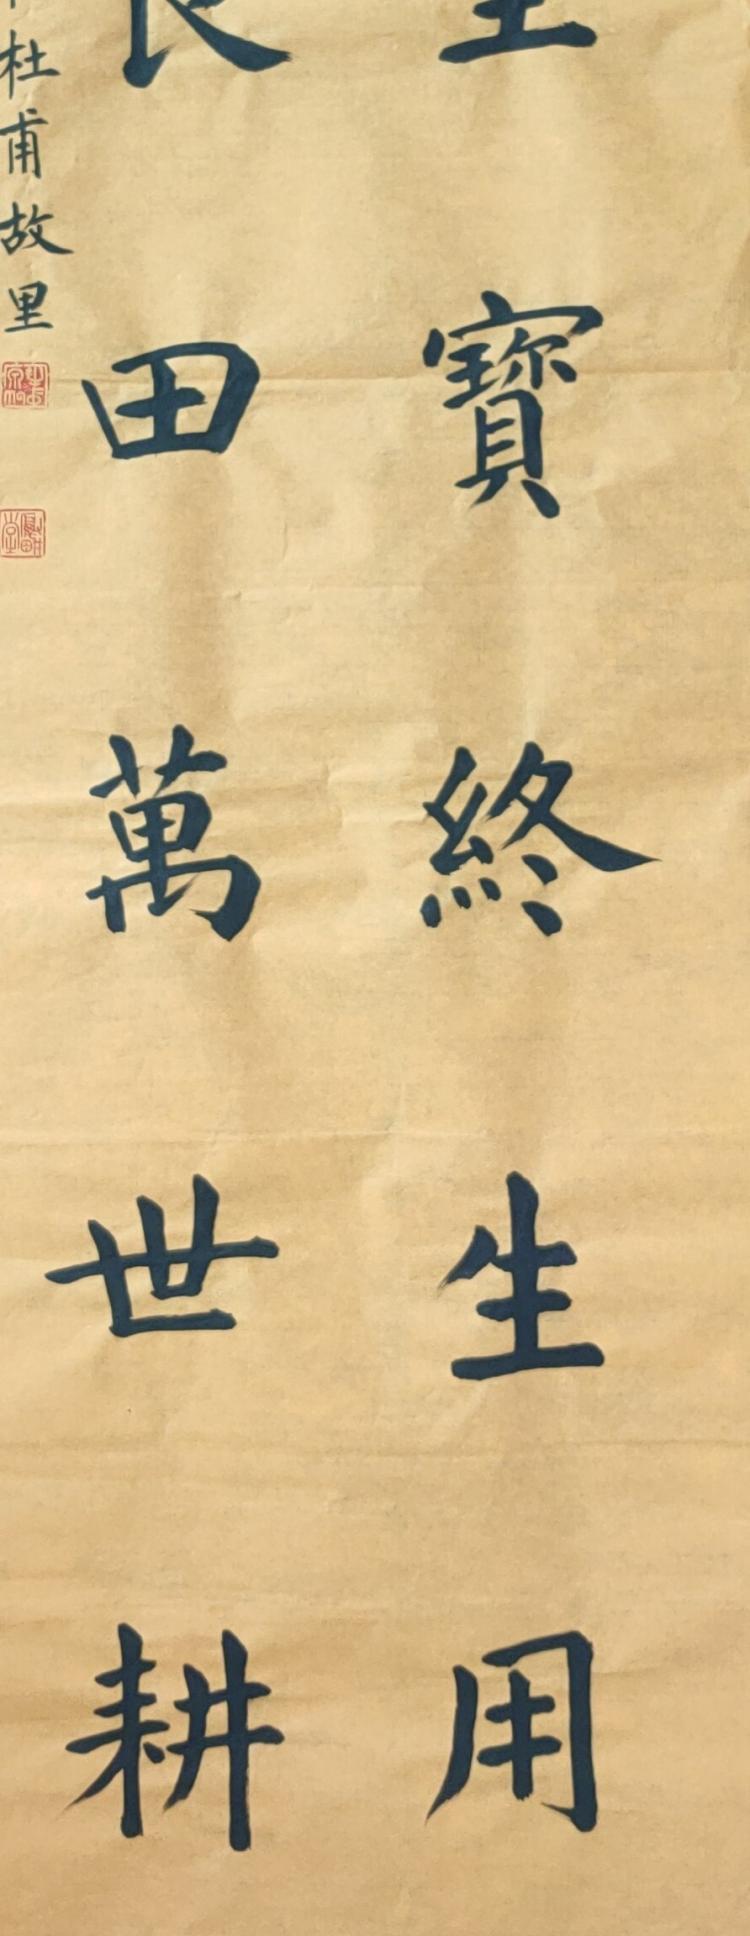 寶終生用
田萬世耕
杜甫故里